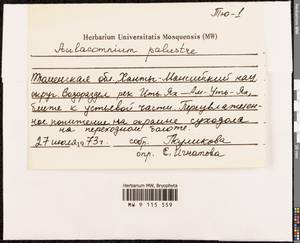 Тю-1
Herbarium Universitatis Mosquensis (MW)
Aulacomnium palustre
Тюменская обл. Ханты-Мансийский нац.
округ. Водораздел рек Ить-Ях – Ай-Уть-Ях,
ближе к устьевой части. Переувлажнен-
ное понижение на окраине суходола
на переходном болоте.
27 июля 1973г. собр.
опр. Е. Игнатова
Herbarium MW, Bryophyta
MW 9 115 559